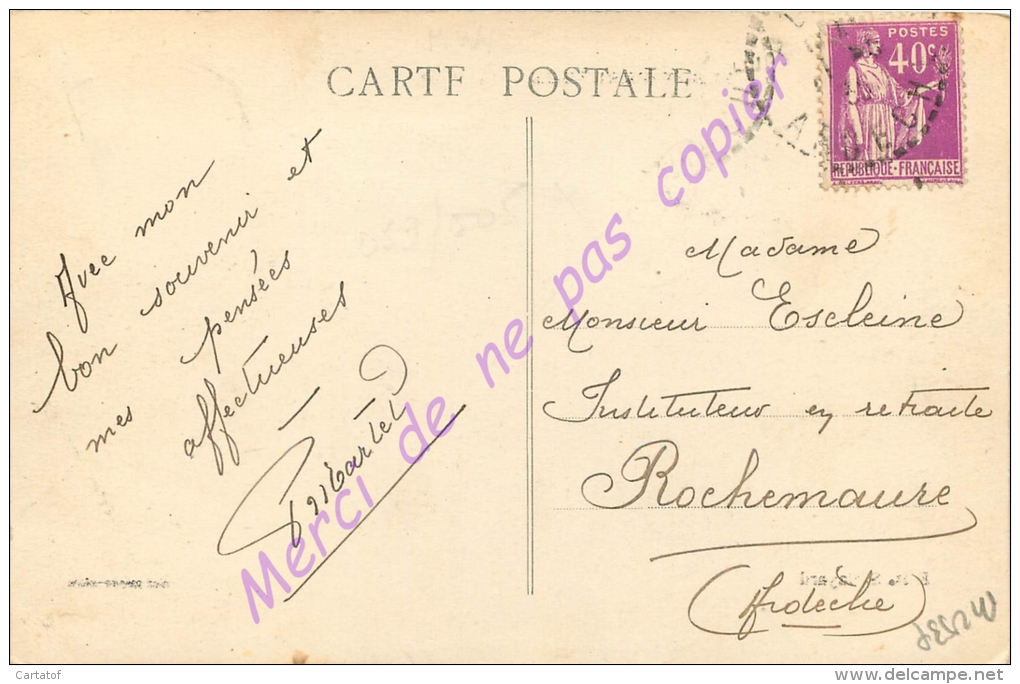 CARTE POSTALE
POSTES
40c
REPUBLIQUE-FRANÇAISE
ARDECH
Avec mon
bon souvenir et
mes pensées
affectueuses
Madame
Monsieur Escleine
Instituteur en retraite
Rochemaure
(Ardèche)
Merci de ne pas copier
Cartatof
www.delcampe.net